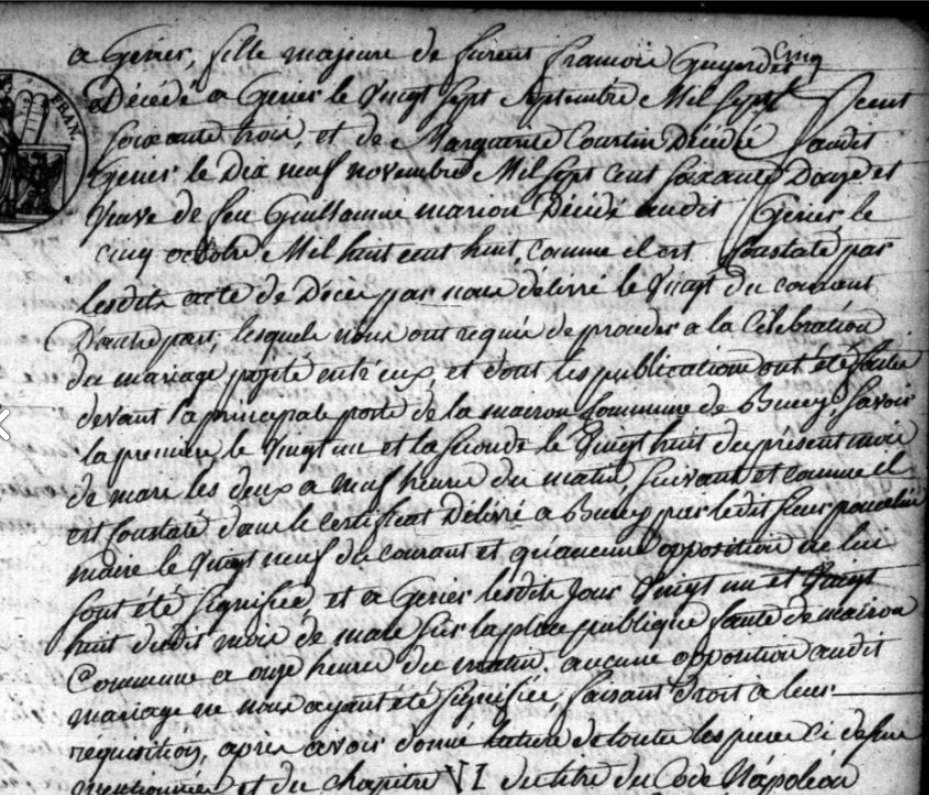 FRAN.
a Genes, fille majeure de furent francois Guyard et cinq
Décédé a Genes le Vingt Sept Septembre Mil Sept cent
soixante trois, et de Marguerite Courtin Décédé audit
Genes le Dix neuf novembre Mil Sept Cent soixante Douze et
Veuve de feu Guillaume marion Décédé audit Genes le
cinq octobre Mil huit cent huit, comme il est Constaté par
lesdits acte de Décès par nous délivré le Vingt du courant
D'autre part; lesquels nous ont requis de procéder a la Célébration
du mariage projeté entr'eux, et dont les publications ont été faites
devant la principale porte de la maison Commune de Bucey, savoir
la premiere le Vingt un et la seconde le Vingt huit du présent mois
de mars les deux a neuf heures du matin, suivant et comme il
est Constaté dans le Certificat Délivré a Bucey par ledit sieur
maire le Vingt neuf du courant et qu'aucune opposition ne lui
sont été signifiée, et a Genes lesdits jours Vingt un et Vingt
huit dudit mois de mars sur la place publique faute de maison
Commune a onze heures du matin. aucune opposition audit
mariage ne nous ayant été signifiée, faisant droit à leur
réquisition, après avoir donné lecture de toutes les pièces ci dessus
mentionnées et du chapitre VI du titre du Code Napoléon